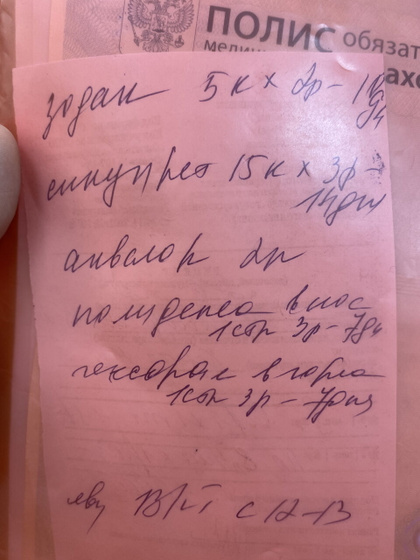 ПОЛИС обязат
медици
ахо
зодак 5 к х 2р - 10дн
синупрет 15 к х 3р -
14дн
аквалор 2р
полидекса в нос
1 стр 3р - 7дн
гексорал в горло
1 стр 3р - 7дня
явка В/КТ с 12-13